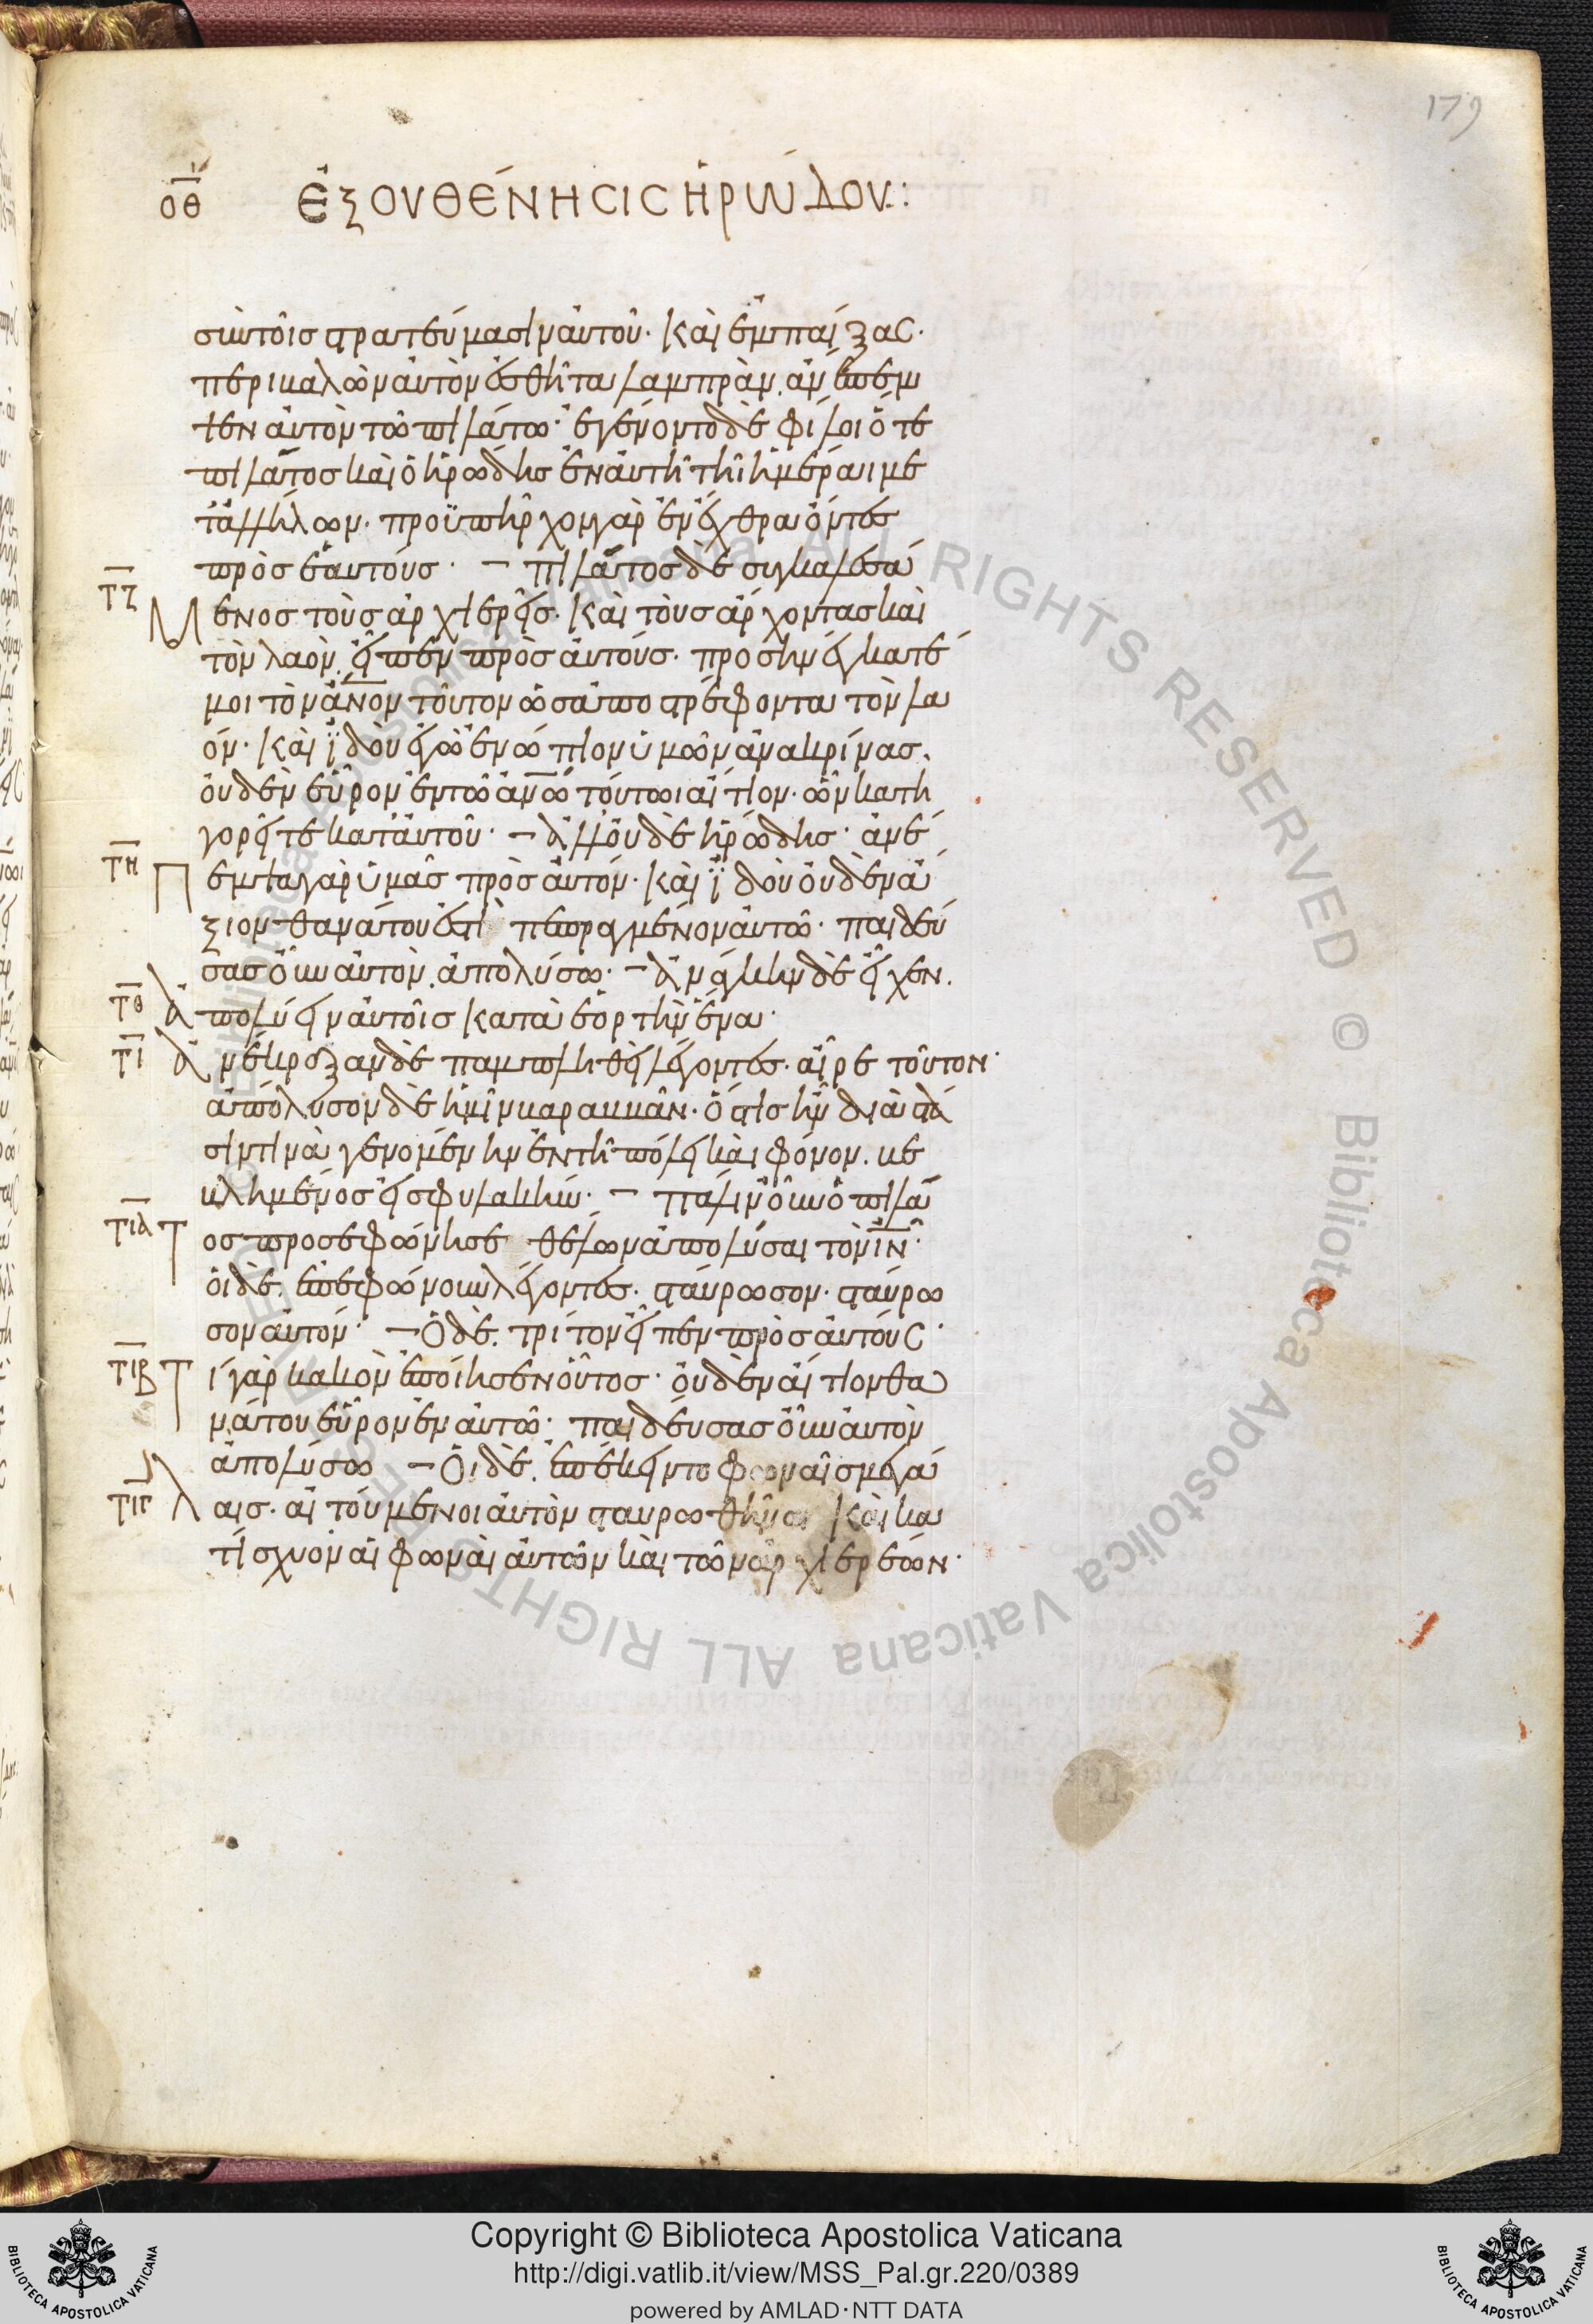 179
οθ ἐξουθένησις ἡρώδου:
σὺν τοῖς στρατεύμασιν αὐτοῦ· καὶ ἐμπαίξας·
περιβαλὼν αὐτὸν ἐσθῆτα λαμπρὰν. ἀνέπεμ
ψεν αὐτὸν τῶ πιλάτω· ἐγένοντο δὲ φίλοι ὅ τε
πιλάτος καὶ ὁ ἡρώδης ἐν αὐτῆ τῆ ἡμέραι με
τ᾽ ἀλλήλων· προϋπῆρχον γὰρ ἐν ἔχθραι ὄντες
πρὸς ἑαυτούς· – πιλάτος δὲ συγκαλεσά
τζ μενος τοὺς ἀρχιερεῖς· καὶ τοὺς ἄρχοντας καὶ
τὸν λαὸν. εἶπεν πρὸς αὐτούς· προσηνέγκατέ
μοι τὸν ἄνον τοῦτον ὡς ἀποστρέφοντα τὸν λα
όν· καὶ ἰδοὺ ἐγὼ ἐνώπιον ὑμῶν ἀνακρίνας.
οὐδὲν εὗρον ἐν τῶ ἀνω τούτωι αἴτιον· ὧν κατη
γορεῖτε κατ᾽ αὐτοῦ· – ἀλλ᾽ οὐδὲ ἡρώδης· ἀνέ
τη πεμψα γὰρ ὑμᾶς πρὸς αὐτόν· καὶ ἰδοὺ οὐδὲν ἄ
ξιον θανάτου ἐστὶ πεπραγμένον αὐτῶ· παιδεύ
σας οὖν αὐτὸν. ἀπολύσω· – ἀνάγκην δὲ εἶχεν.
τθ ἀπολύειν αὐτοῖς κατὰ ἑορτὴν ἕνα·
τι ἀνέκραξαν δὲ παμπληθεὶ λέγοντες· αἶρε τοῦτον·
ἀπόλυσον δὲ ἡμῖν βαραββᾶν· ὅστις ἦν διὰ στά
σιν τινὰ γενομένην ἐν τῆ πόλει καὶ φόνον. βε
βλημένος εἰς φυλακήν· – πάλιν οὖν ὁ πιλά
τια τος προσεφώνησε θέλων ἀπολύσαι τὸν ιν·
οἱ δὲ. ἐπεφώνουν λέγοντες· σταύρωσον· σταύρω
σον αὐτόν· – ὁ δὲ. τρίτον εἶπεν πρὸς αὐτούς·
τιβ τί γὰρ κακὸν ἐποίησεν οὗτος· οὐδὲν αἴτιον θα
νάτου εὗρον ἐν αὐτῶ· παιδεύσας οὖν αὐτὸν
ἀπολύσω – οἱ δὲ. ἐπέκειντο φωναῖς μεγά
τιγ λαις· αἰτούμενοι αὐτὸν σταυρωθῆναι καὶ κα
τίσχυον αἱ φωναὶ αὐτῶν καὶ τῶν ἀρχιερέων·
© Biblioteca Apostolica Vaticana ALL RIGHTS RESERVED © Biblioteca Apostolica Vaticana ALL RIGHTS RESERVED
Copyright © Biblioteca Apostolica Vaticana
http://digi.vatlib.it/view/MSS_Pal.gr.220/0389
powered by AMLAD·NTT DATA
BIBLIOTECA APOSTOLICA VATICANA
BIBLIOTECA APOSTOLICA VATICANA